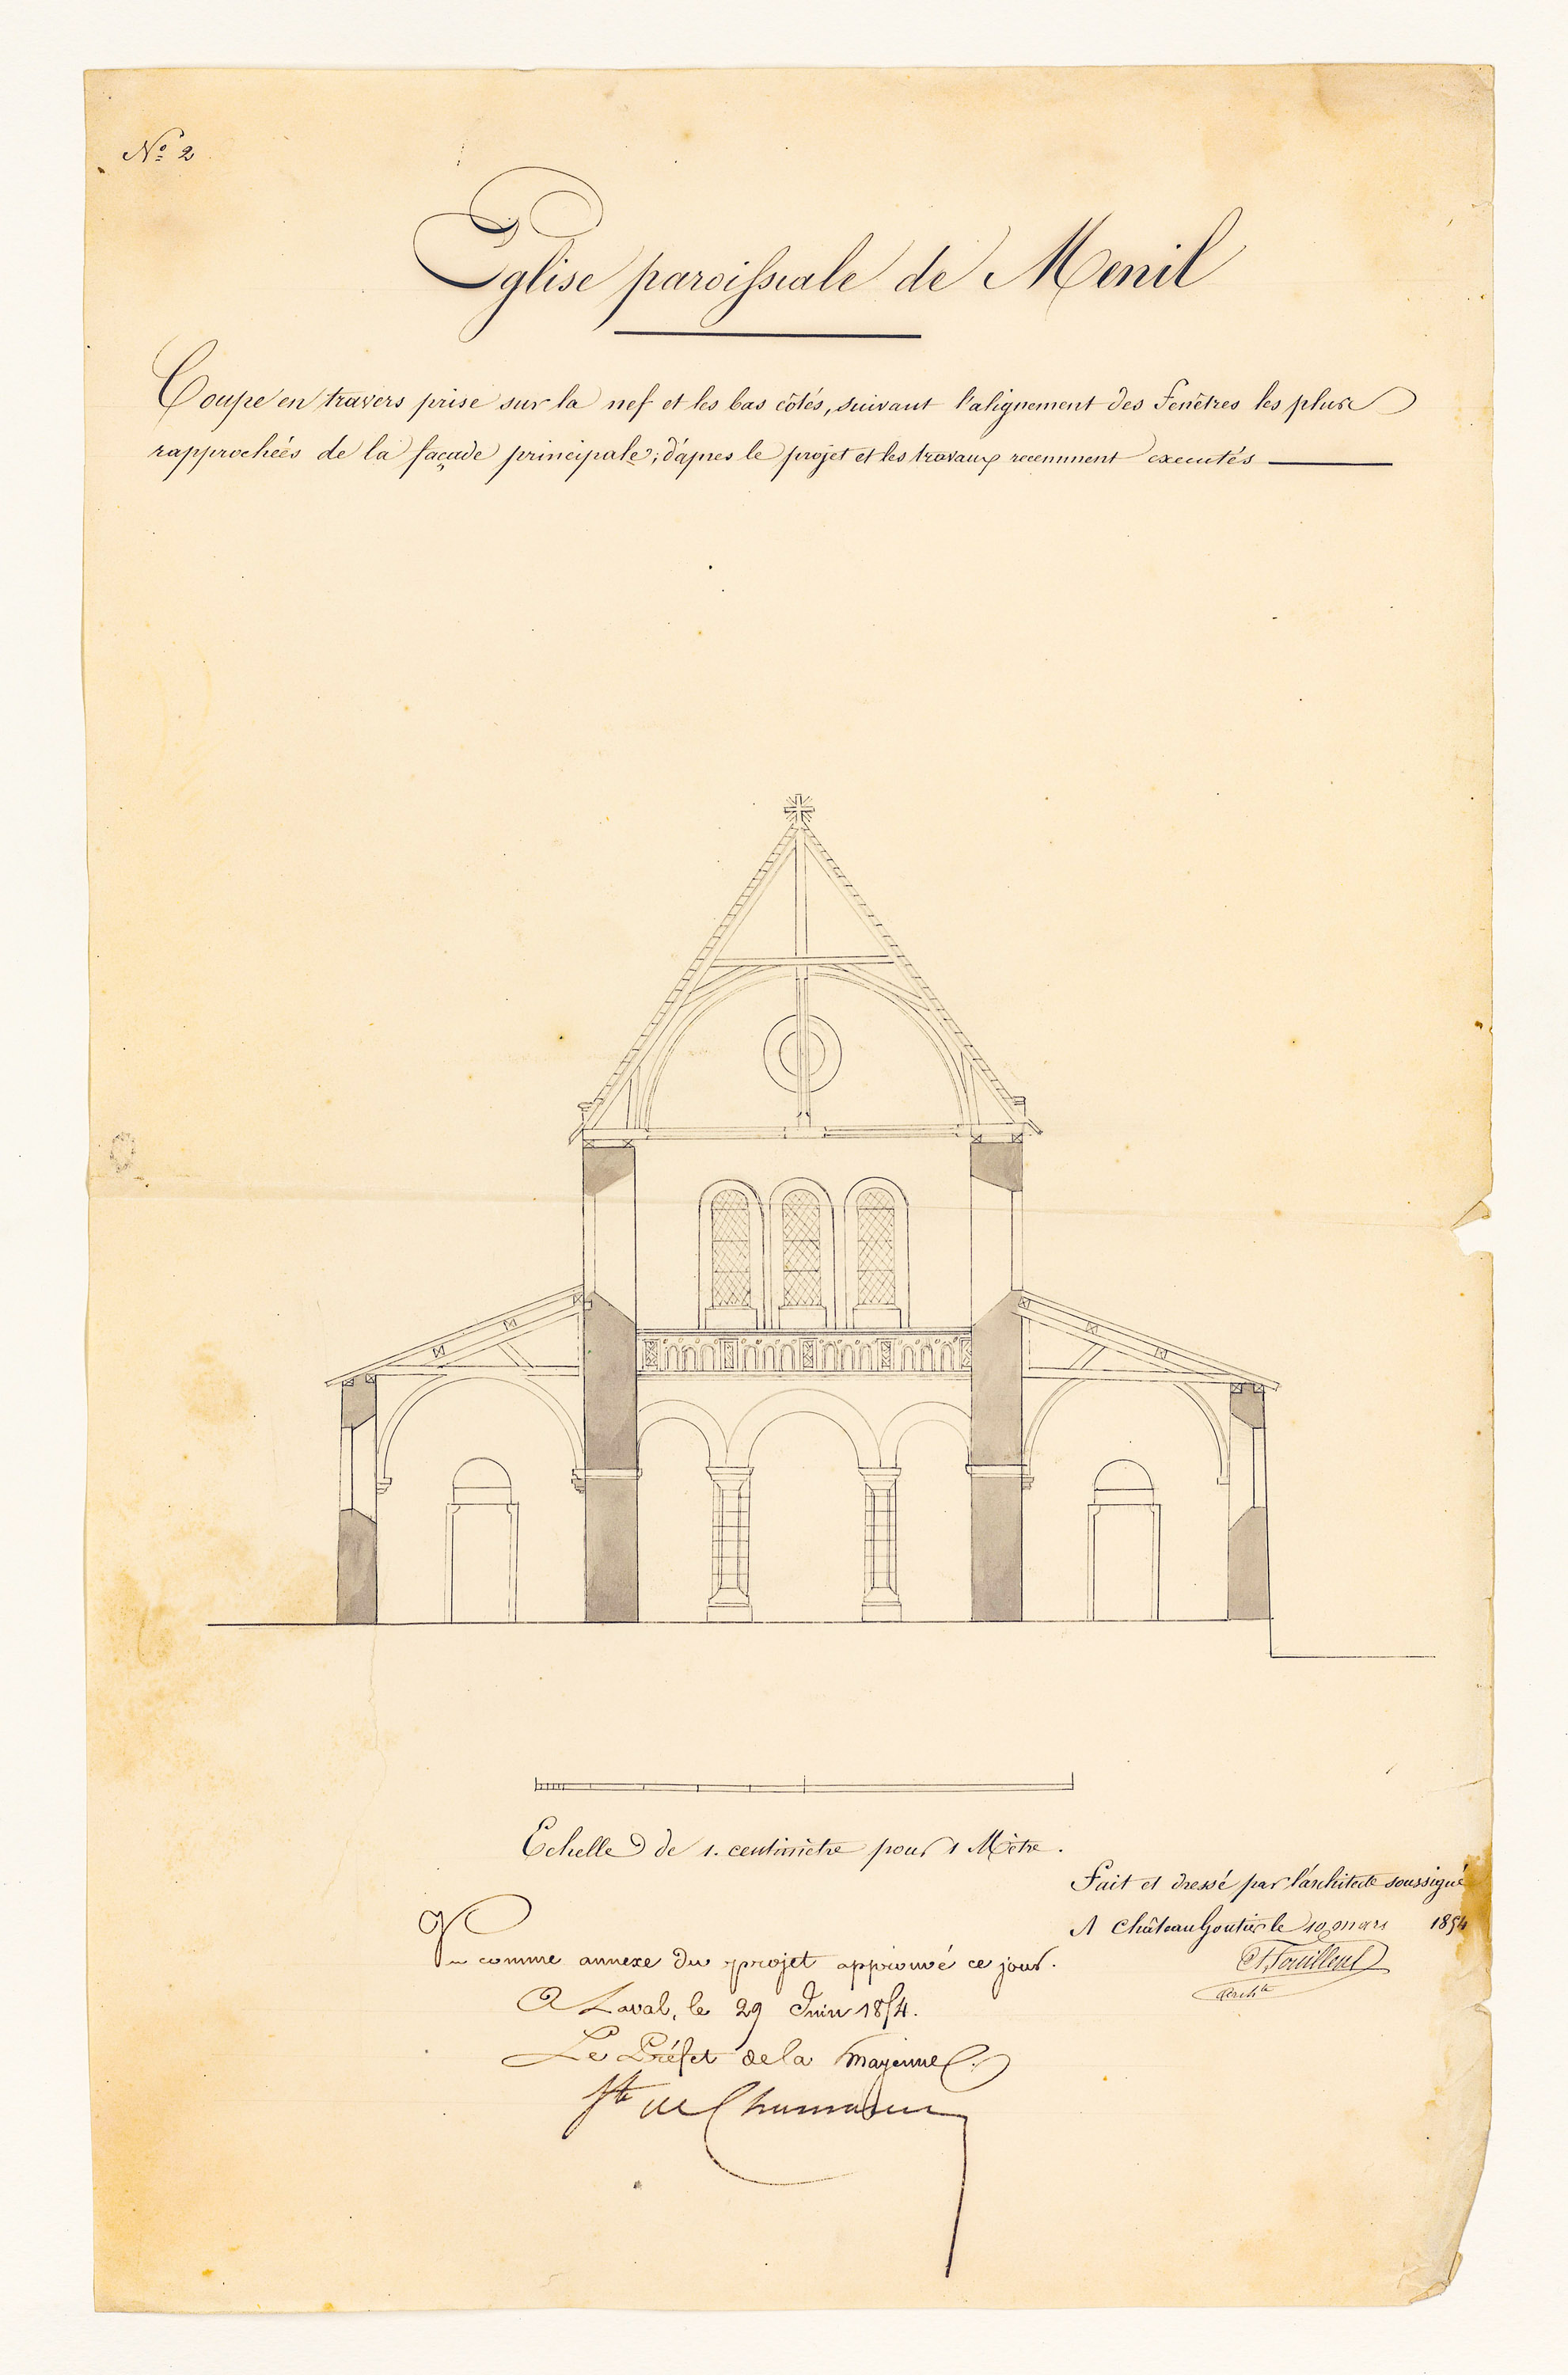 Nº 2
Eglise paroissiale de Menil
Coupe en travers prise sur la nef et les bas côtés, suivant l'alignement des fenêtres les plus
rapprocheés de la façade principale; d'apres le projet et les travaux recemment executés
Echelle de 1. centimètre pour 1 Mètre.
Fait et dressé par l'architecte soussigné
A Château Gontier le 10 mars 1854
Archte
Vu comme annexe du projet approuvé ce jour.
A Laval, le 29 Juin 1854.
Le Préfet de la Mayenne